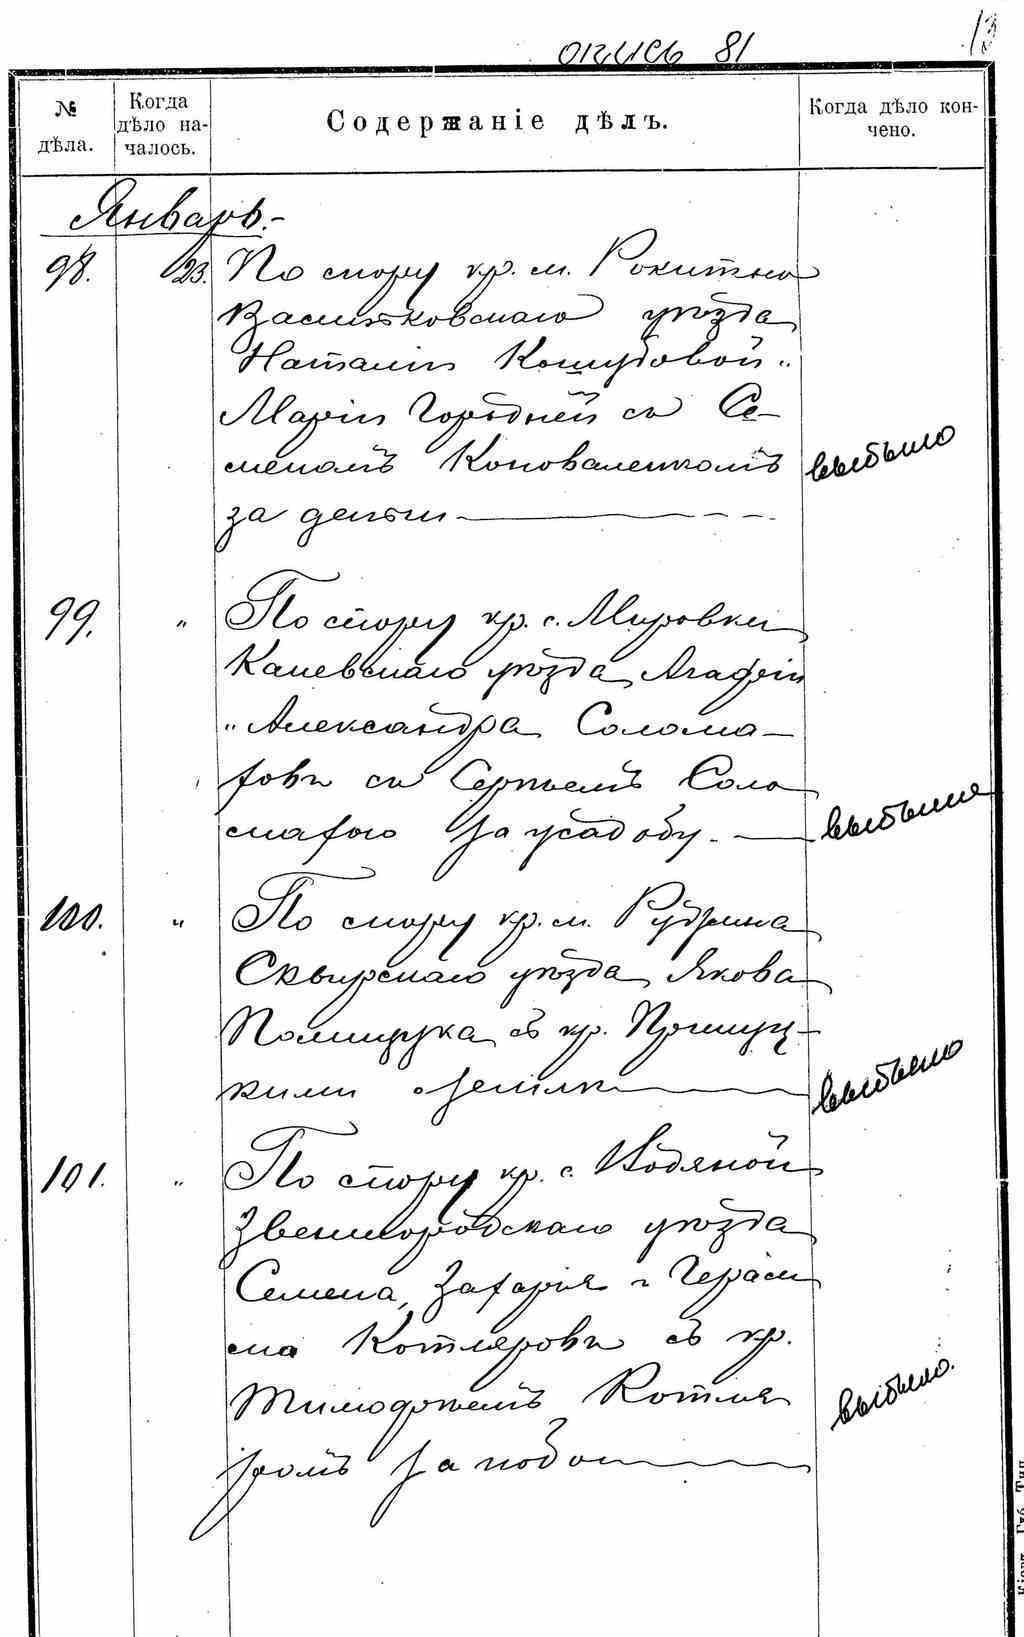 опись 81
13
№ дѣла.
Когда дѣло началось.
Содержаніе дѣлъ.
Когда дѣло кончено.
Январь.-
98. 23. По спору кр. м. Рокитно
Васильковскаго уѣзда
Наталіи Кошубовой и
Маріи Городней съ Се-
меномъ Коноваленкомъ выбыло
за деньги
99. " По спору кр. с. Мировки
Каневскаго уѣзда Агафіи
и Александра Солома-
ховъ съ Сергѣемъ Соло
махою за усадьбу. выбыло
100. " По спору кр. м. Ружина
Сквирскаго уѣзда Якова
съ кр.
кими о землѣ выбыло
101. " По спору кр. с. Водяной
Звенигородскаго уѣзда
Семена, Захарія и Гераси
ма Котляровъ съ кр.
Тимофѣемъ Котля
ромъ за выбыло.
Кіевъ, Губ. Тип.